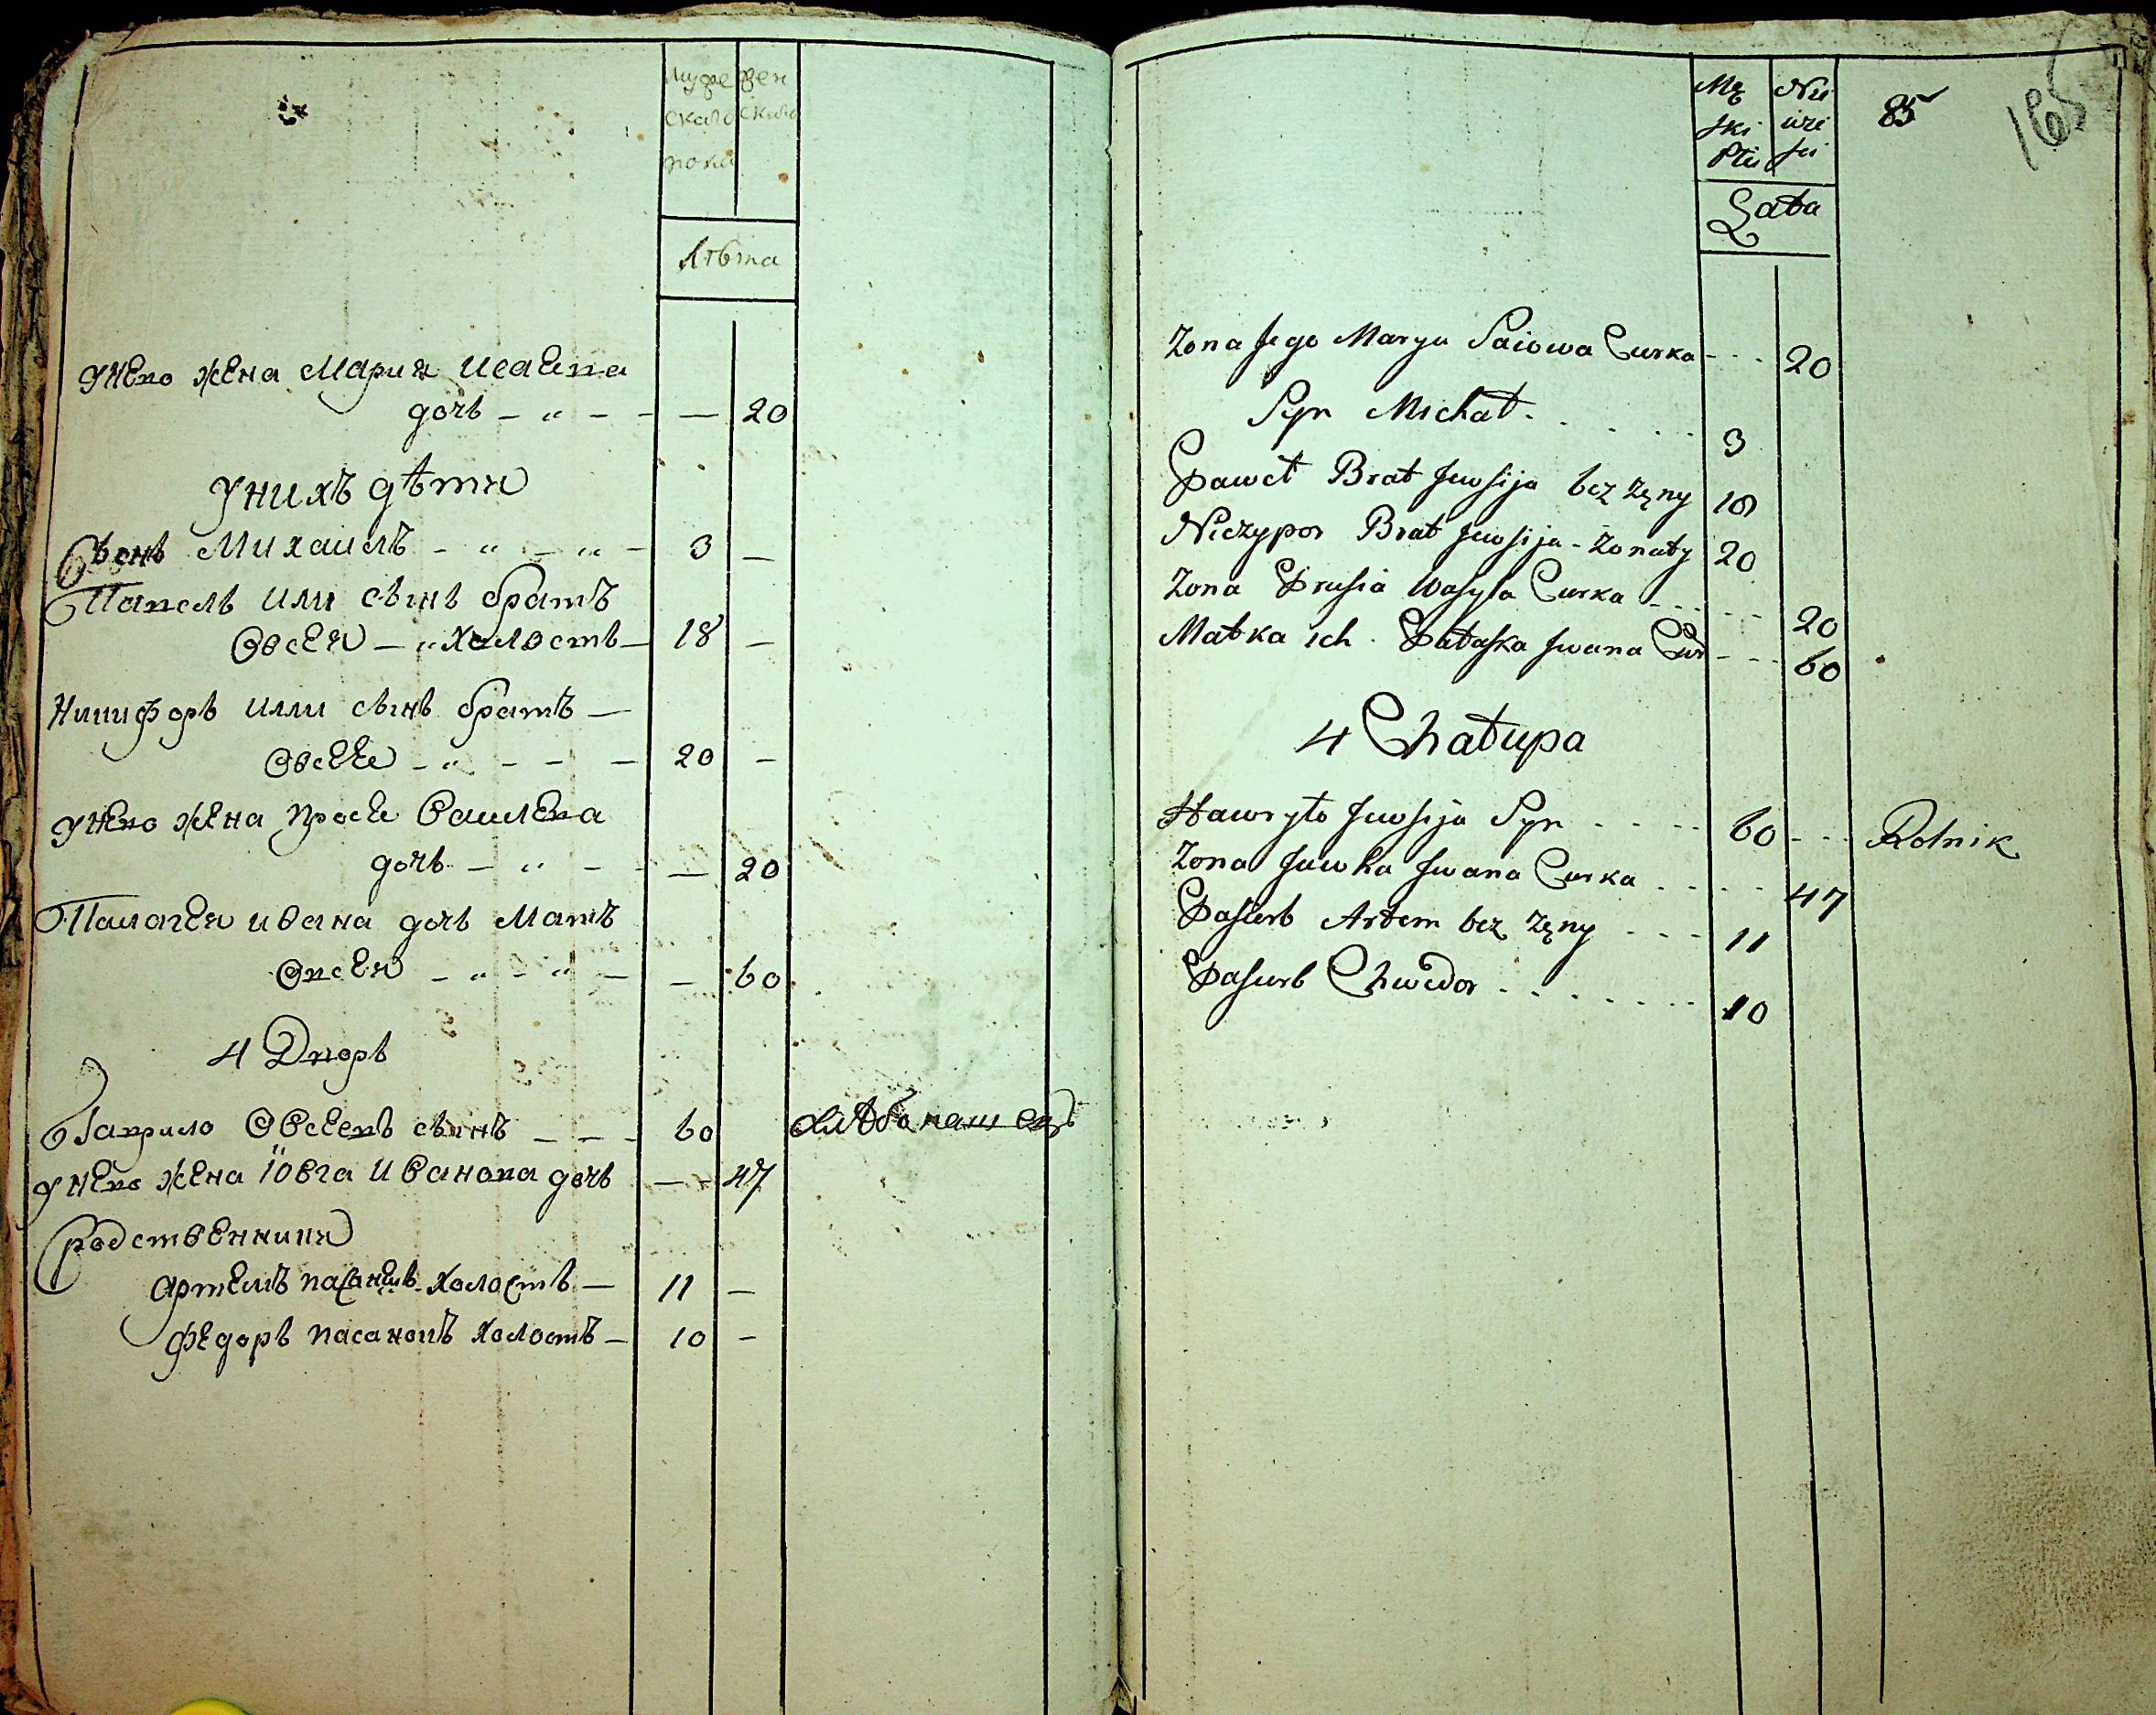 муже жен
скаго скаго
пола
лѣта
унево жена Мария Исаева
дочь - " - - — 20
унихъ дѣти
Сынъ Михаилъ - " - " - 3 —
Павелъ Или сынъ братъ
Овсея - " холостъ - 18 —
Никифоръ Илли сынъ братъ —
Овсее - " - - - 20 —
унево жена Прося Василева
дочь - " - — 20
Палагея ивана дочь Мать
Овсея - " - " - — 60
4 Дворъ
Гаврило Овсеевъ сынъ - - - 60 хлѣбопашецъ
унево жена Ювга Иванова дочь — 47
родственники
Артемъ пасанокъ холостъ — 11 —
Федоръ пасанокъ холостъ — 10 —
Mę Nie
ski wie
Płci sci
85
165
Lata
Zona Jego Marya Saiowa Curka - - - 20
Syn Michał . . . . . 3
Paweł Brat Jewsija bez żęny 18
Niczypor Brat Jewsija - Zonaty 20
Zona Prusia Wasyla Curka - - - - - 20
Matka ich Pałaska Jwana Cur - - - 60
4 Chałupa
Hawryło Jewsija Syn - - - - 60 - - - Rolnik
Zona Jewha Jwana Curka . - - - 47
Pasierb Artem bez żęny - - - 11
Pasierb Chwedor . . . . . . . . 10